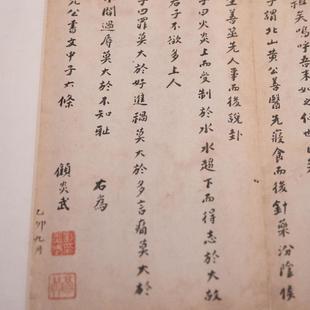 嗚呼吾未
子謂北山黃公善醫先寢食而後針藥汾陰侯
生善筮先人事而後說卦
子曰火炎上而受制於水水趨下而得志於故
君子不欲多上人
子曰罪莫大於好進禍莫大於多言痛莫大於
不聞過辱莫大於不知恥 右為
公書文中子六條
顧炎武
己卯九月